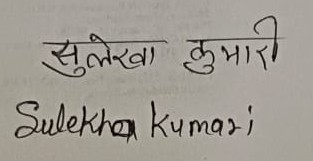 सुलेखा कुमारी
Sulekha Kumari